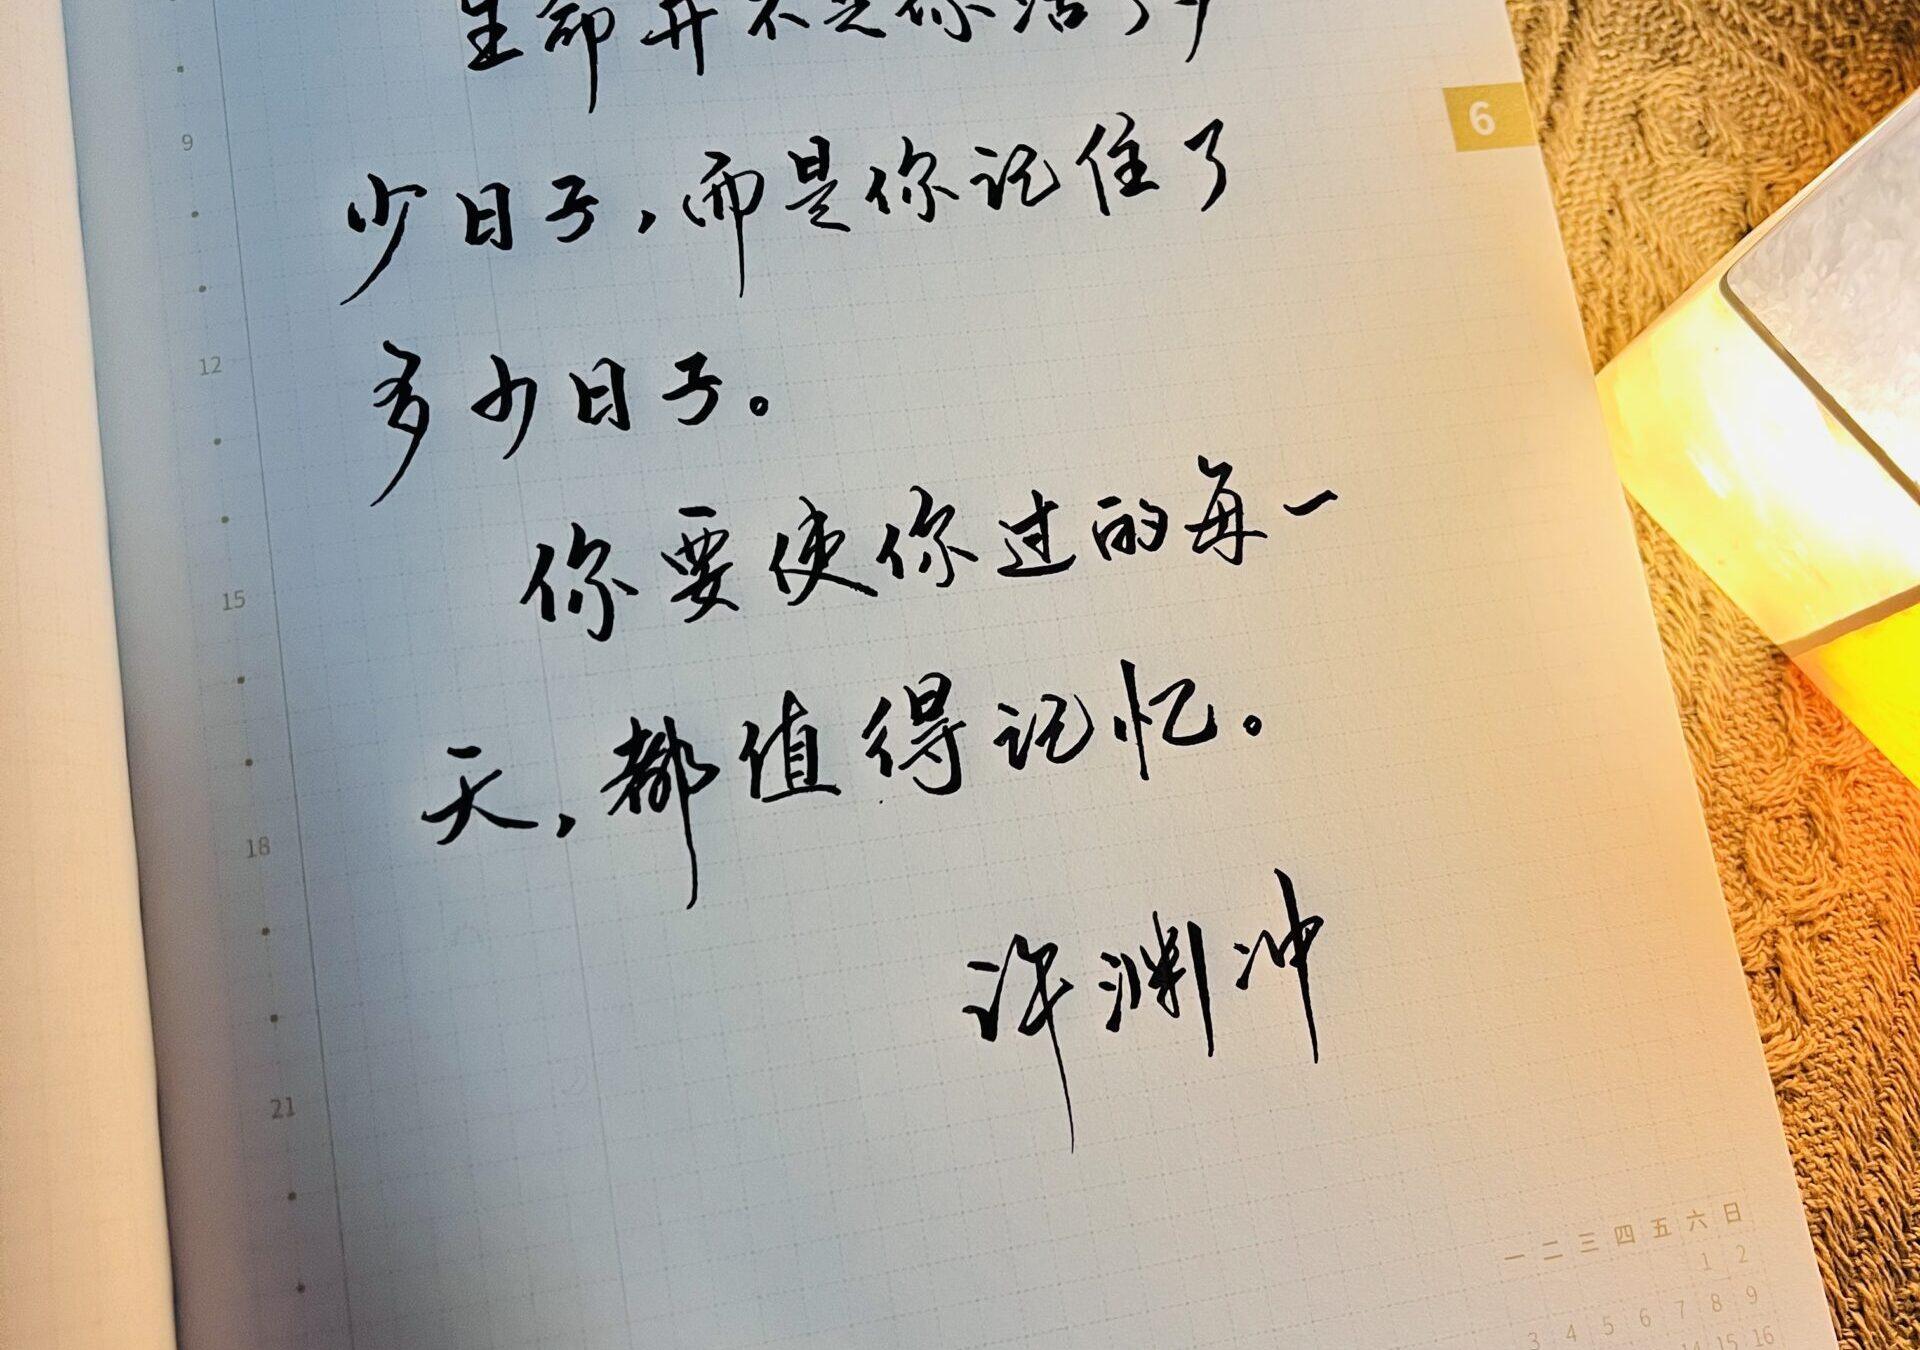 生命并不是你活了多
少日子，而是你记住了
多少日子。
你要使你过的每一
天，都值得记忆。
许渊冲
6
9
12
15
18
21
一 二 三 四 五 六 日
1 2
3 4 5 6 7 8 9
14 15 16